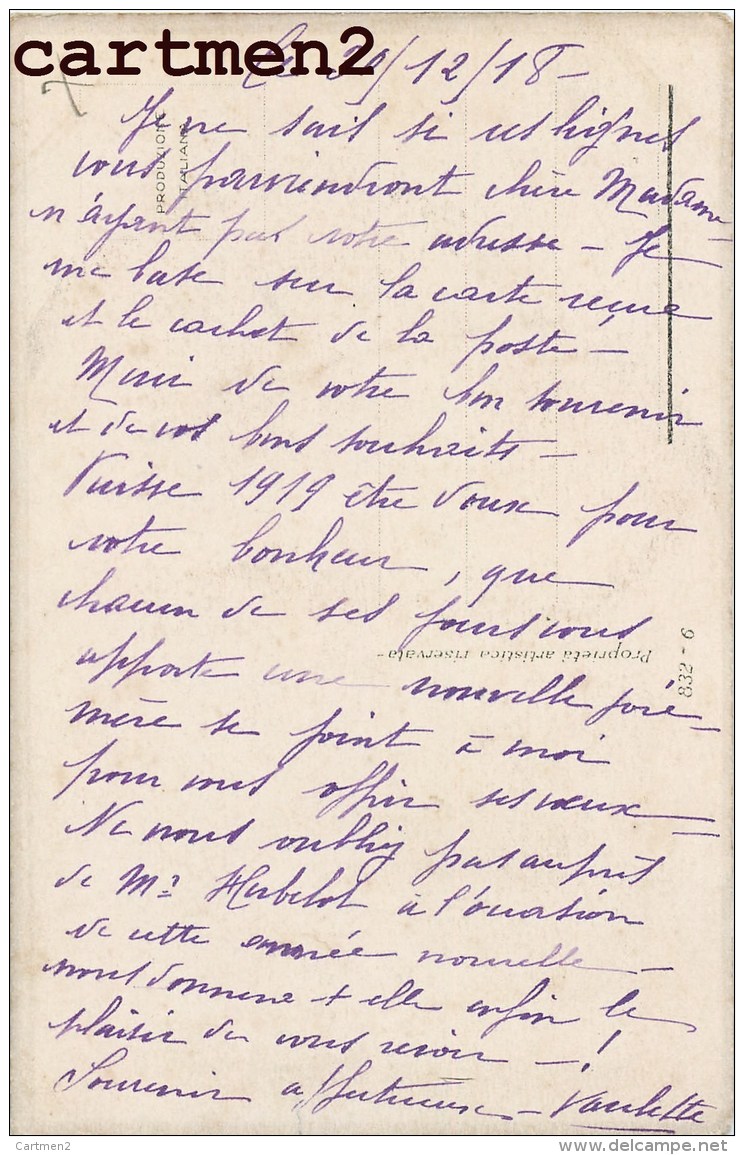 cartmen2
Le 29/12/18 -
Je ne sais si ces lignes
vous parviendront chère Madame
n'ayant pas votre adresse - Je
me base sur la carte reçue
et le cachet de la poste -
Merci de votre bon souvenir
et de vos bons souhaits -
Puisse 1919 être doux pour
votre bonheur, que
chacun de ses jours vous
apporte une nouvelle joie -
mère se joint à moi
pour vous offrir ses vœux -
Ne nous oubliez pas auprès
de Mr Herbelot à l'occasion
de cette année nouvelle -
nous donnera t elle enfin le
plaisir de vous revoir - !
Souvenir affectueux -
PRODUZIONE
ITALIANA
Proprietà artistica riservata -
832-6
Cartmen2